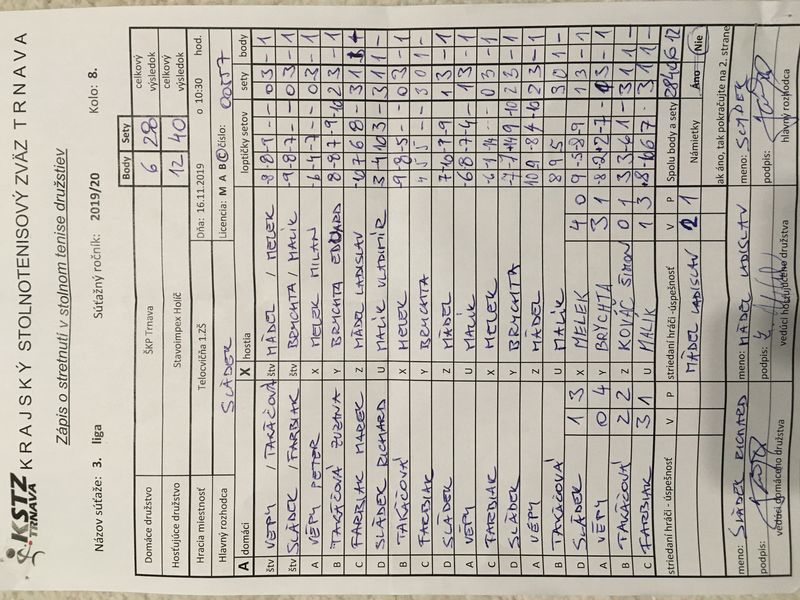 KSTZ
TRNAVA
KRAJSKÝ STOLNOTENISOVÝ ZVÄZ TRNAVA
Zápis o stretnutí v stolnom tenise družstiev
Názov súťaže: 3. liga Súťažný ročník: 2019/20 Kolo: 8.
Body Sety
Domáce družstvo ŠKP Trnava 6 28 celkový výsledok
Hosťujúce družstvo Stavoimpex Holíč 12 40 celkový výsledok
Hracia miestnosť Telocvičňa 1.ZŠ Dňa: 16.11.2019 o 10:30 hod.
Hlavný rozhodca SLÁDEK Licencia: M A B C číslo:
A domáci X hostia loptičky setov sety body
štv VÉPY / TAKÁČOVÁ štv MÄDEL / MELEK -8 -8 -9 - - 03 - 1
štv SLÁDEK / FARBIAK štv BRYCHTA / MALÍK -9 -8 -7 - - 03 - 1
A VÉPY PETER X MELEK MILAN -6 -4 -7 - - 03 - 1
B TAKÁČOVÁ ZUZANA Y BRYCHTA EDUARD 8 -8 -7 9 -10 23 - 1
C FARBIAK MAREK Z MÄDEL LADISLAV 31
D SLÁDEK RICHARD U MALÍK VLADIMÍR 3 -4 10 3 - 31 1 -
B TAKÁČOVÁ X MELEK -9 -8 -5 - - 03 - 1
C FARBIAK Y BRYCHTA 4 5 5 - - 30 1 -
D SLÁDEK Z MÄDEL 13 - 1
A VÉPY U MALÍK -6 8 -7 -4 - 13 - 1
C FARBIAK X MELEK 03 - 1
D SLÁDEK Y BRYCHTA 23 - 1
A VÉPY Z MÄDEL 10 9 -8 -4 -10 23 - 1
B TAKÁČOVÁ U MALÍK 8 9 5 30 1 -
D SLÁDEK 1 3 X MELEK 4 0 9 -5 -8 -9 13 - 1
A VÉPY 0 4 Y BRYCHTA 3 1 -8 -2 -2 -7 - 03 - 1
B TAKÁČOVÁ 2 2 Z KOVÁČ ŠIMON 0 1 3 3 -6 1 - 31 1 -
C FARBIAK 3 1 U MALÍK 1 3 31 1 -
striedaní hráči - úspešnosť V P striedaní hráči -úspešnosť V P Spolu body a sety 28 40 6 12
MÄDEL LADISLAV 2 1 Námietky Áno - Nie
ak áno, tak pokračujte na 2. strane
meno: SLÁDEK RICHARD meno: MÄDEL LADISLAV meno: SLÁDEK
podpis: podpis: podpis:
vedúci domáceho družstva vedúci hosťujúceho družstva hlavný rozhodca